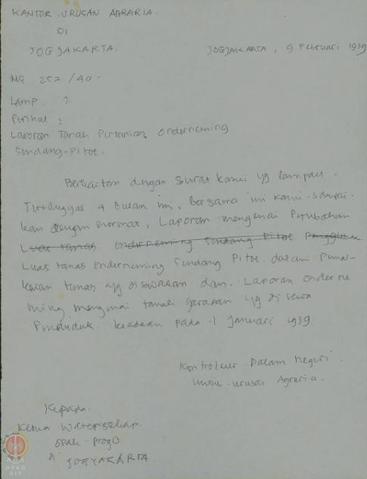 KANTOR URUSAN AGRARIA
DI
JOGJAKARTA.
JOGJAKARTA, 9 Februari 1939
No 252/40.
Lamp :
Perihal :
Laporan Tanah Pertanian Onderneming
Sindang-Pitoe.
Berkaitan dengan surat kami yg lampau
Tertanggal 4 bulan ini, Bersama ini kami sampai
kan dengan hormat, Laporan mengenai Perubahan
Luas tanas Onderneming Sindang Pitoe
Luas tanas Onderneming Sindang Pitoe. dalam Pema-
kaian tanas yg disewakan dan. Laporan Onderne
ming mengenai tanah garapan yg di sewa
Penduduk. keadaan pada 1 Januari 1939.
Kontroleur Dalam Negeri.
Untuk urusan Agraria.
Kepada.
Ketua Waterschap
Opak-Progo
di JOGYAKARTA.